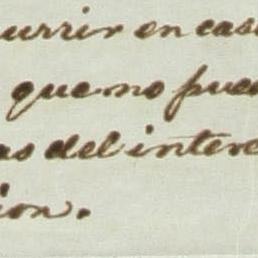 urrir en cas
que no pue
as del interc
ion.